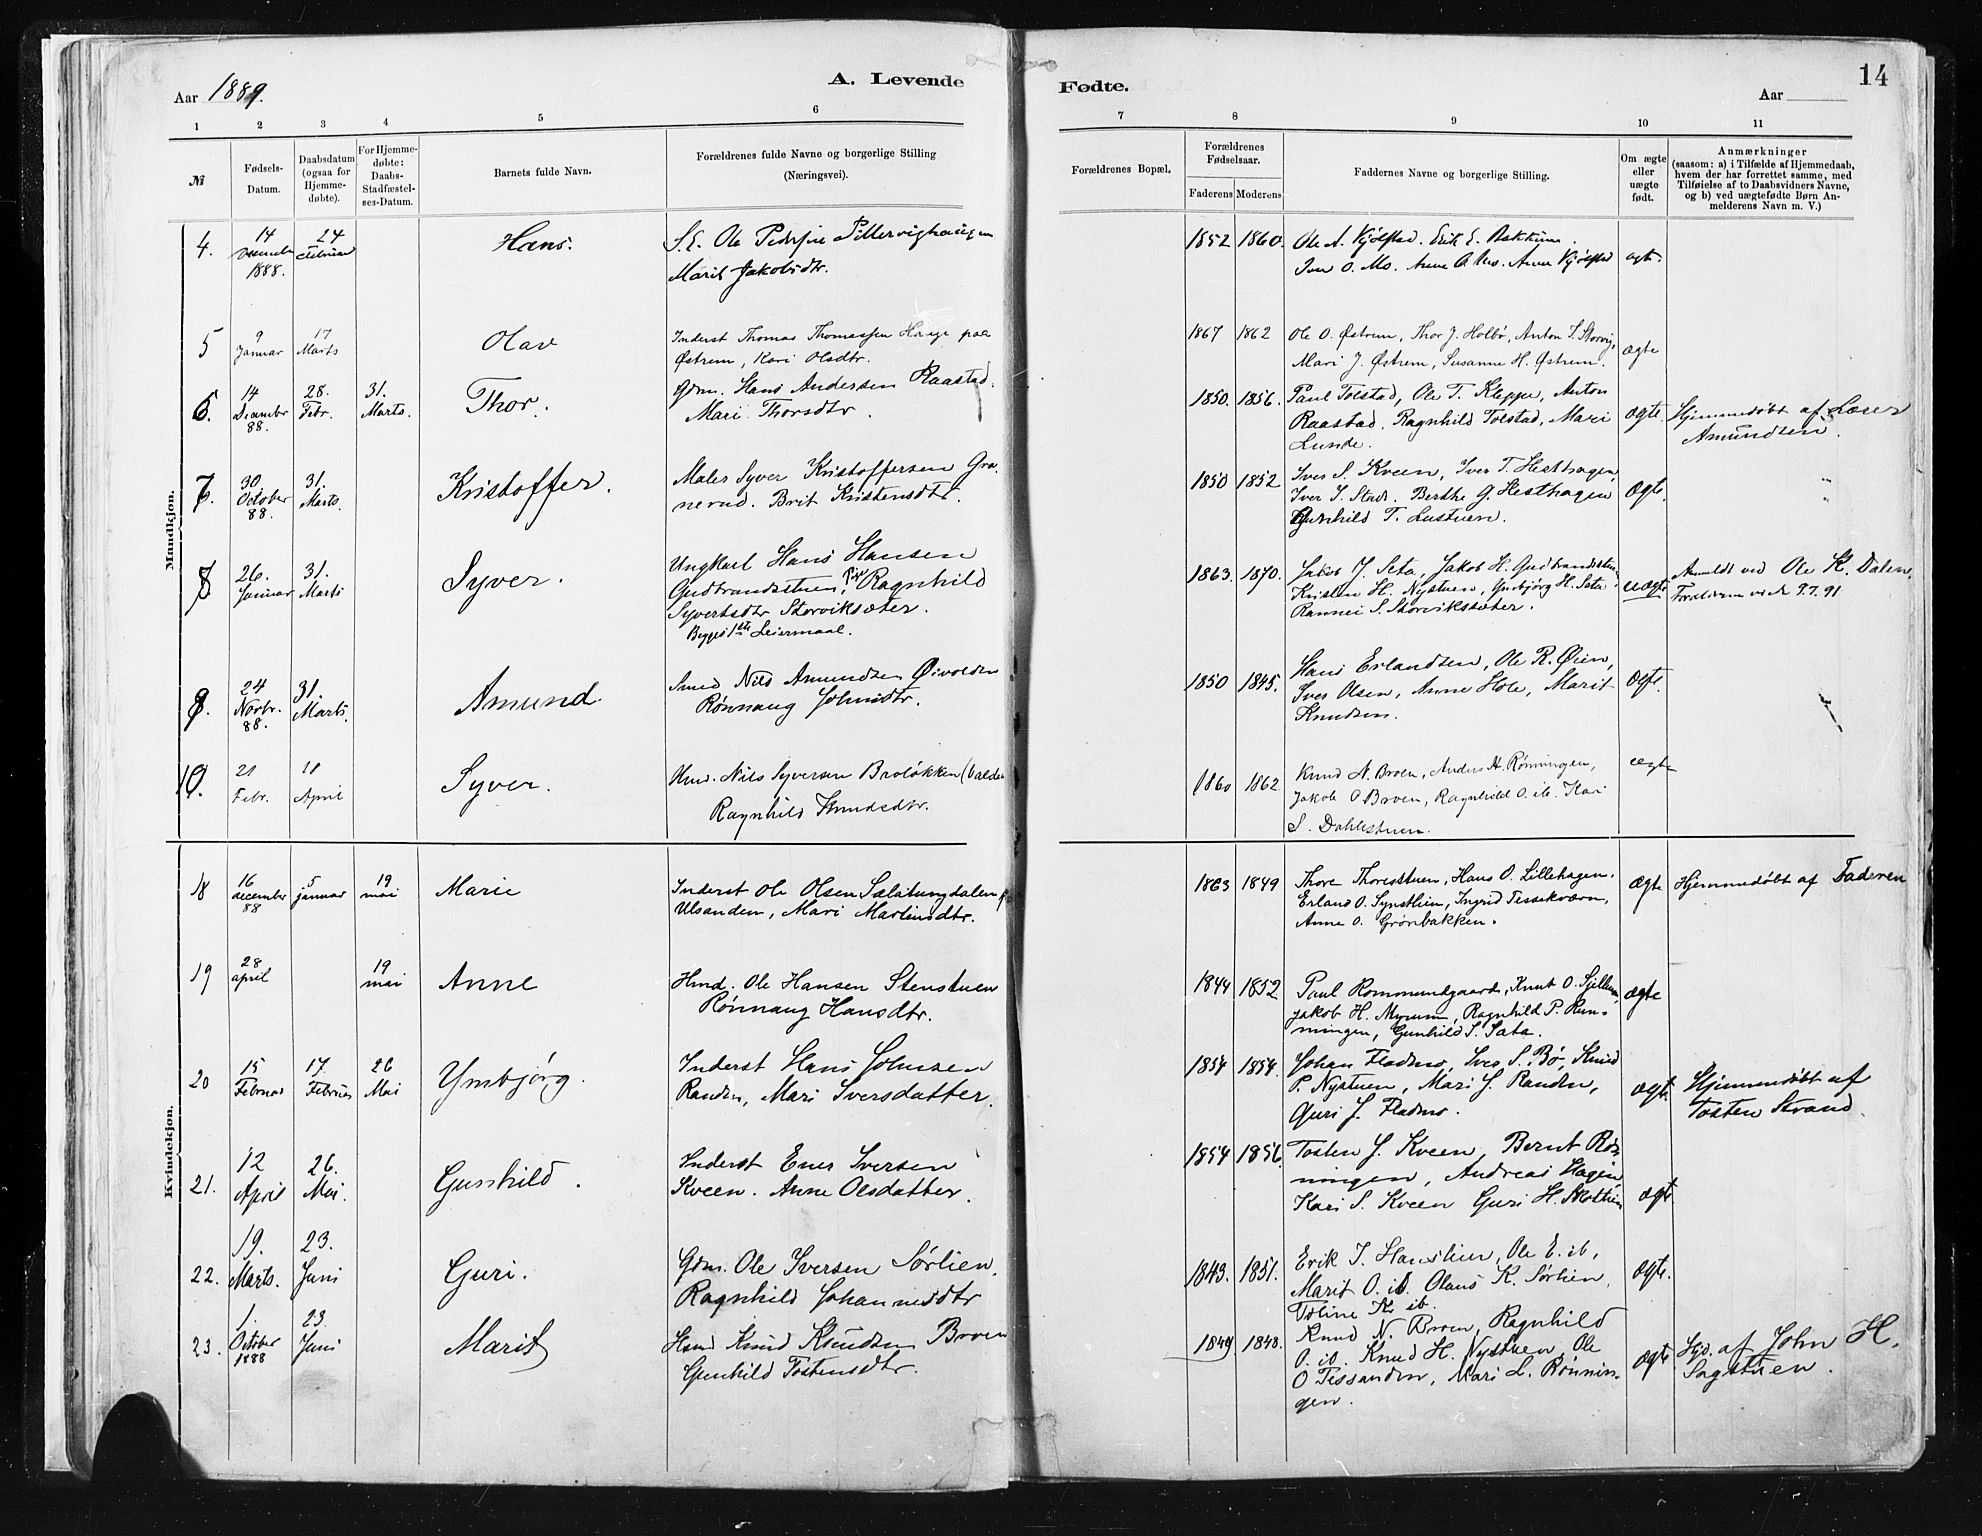 Aar 1889.
A. Levende
Fødte.
14
Aar
1 2 3 4 5 6 7 8 9 10 11
№
Fødsels-
Datum.
Daabsdatum
(ogsaa for
Hjemme-
døbte).
For Hjemme-
døbte:
Daabs-
Stadfæstel-
ses-Datum.
Barnets fulde Navn.
Forældrenes fulde Navne og borgerlige Stilling
(Næringsvei).
Forældrenes Bopæl.
Forældrenes
Fødselsaar.
Faderens Moderens
Faddernes Navne og borgerlige Stilling.
Om ægte
eller
uægte
født.
Anmærkninger
(saasom: a) i Tilfælde af Hjemmedaab,
hvem der har forrettet samme, med
Tilføielse af to Daabsvidners Navne,
og b) ved uægtefødte Børn An-
melderens Navn m. V.)
Mandkjøn.
4. 14 24
1888.
Hans.
S. E. Ole
Marit Jakobsdtr.
1852 1860.
Ole A. Kjølstad. Erik E. Bakkum.
Iver O. Mo. Anne Kjølstad
ægte.
5 9 Januar 17 Marts
Olav
Inderst Thomas Thomassen Hauge paa
Østrem, Kari Olsdtr.
1867 1862
Ole O. Østrem, Thor J. Holbø, Anton S. Storvig,
Mari J. Østrem, Susanne H. Østrem.
Ægte
6. 14 Decembr 88. 28. Febr. 31. Marts.
Thor.
Gdm. Hans Andersen Raastad.
Mari Thorsdtr.
1850. 1856.
Paul Tolstad, Ole T. Kleppe, Anton
Raastad. Ragnhild Tolstad, Mari
Lunde.
Ægte.
Hjemmedøbt af Lærer
Amundsen.
7. 30. October 88. 31. Marts.
Kristoffer.
Maler Syver Kristoffersen Gra-
nerud. Brit Kristensdtr.
1850 1852
Iver S. Kveen, Iver T. Hesthagen,
Iver J. Stad. Berthe G. Hesthagen
Gunhild T. Lustuen.
Ægte.
8 26. Januar 31. Marts
Syver.
Ungkarl Hans Hansen
Gudbrandsstuen, Pige Ragnhild
Syvertsdtr Storviksæter.
Begges 1ste Leiermaal.
1863. 1870.
Jakob J. Seta, Jakob H. Gudbrandsstuen,
Kristen H. Nystuen, Ymbjørg H. Seta
Rannei S. Storviksæter.
uægte
Anmeldt ved Ole K. Dalen,
9.7.91
9. 24 Novbr. 88. 31. Marts.
Amund.
Smed Nils Amundsen Øivolden
Rønnaug Johnsdtr.
1850 1845.
Hans Erlandsen, Ole R. Øien,
Iver Olsen, Anne Hole, Marit
Knudsen.
Ægte.
10. 21 Febr. 18 April
Syver.
Hmd. Nils Syversen Broløkken
Ragnhild Knudsdtr.
1860 1862.
Knud N. Broen, Anders H. Rønningen,
Jakob O Broen, Ragnhild O. ib. Kari
S. Dahlestuen.
Ægte
Kvindekjøn.
18 16 december 88 5 januar 19 mai
Marie
Inderst Ole Olsen
Ulsanden, Mari Martinsdtr.
1863 1849
Thore Thorestuen, Hans O. Lillehagen.
Erland O. Synstlien, Ingrid Tessekværn,
Anne O. Grønbakken.
Ægte
Hjemmedøbt af Faderen
19 28 april 19 mai
Anne
Hmd. Ole Hansen Stenstuen
Rønnaug Hansdtr.
1844 1852
Paul Rommundgaard, Knut O.
Jakob H. Myrum, Ragnhild P. Røn-
ningen, Gunhild S. Sata.
Ægte
20 15 Februar 17. Februar 26 Mai
Ymbjørg.
Inderst Hans Johnsen
Randen, Mari Iversdatter.
1854 1854.
Johan Fladmo, Iver S. Bø, Knud
P. Nystuen, Mari J. Randen,
Guri J. Fladmo.
Ægte.
Hjemmedøbt af
Tosten Strand.
21. 12 April 26. Mai.
Gunhild.
Inderst Ener Iversen
Kveen. Anne Olsdatter.
1854 1856.
Tosten J. Kveen, Bernt Røn-
ningen, Andreas Hagen,
Kari S. Kveen Guri H.
Ægte
22. 19. Marts. 23. Juni
Guri.
Gdm. Ole Iversen Sørlien.
Ragnhild Johannesdtr
1843. 1851.
Erik I. Hanslien, Ole E. ib,
Marit O. ib. Olaus K. Sørlien,
Toline K. ib.
Ægte.
23. 1. October 1888 23. Juni
Marit
Hmd Knud Knudsen Broen
Gunhild Tostensdtr.
1849 1848.
Knud N. Broen, Ragnhild
O. ib. Knud H. Nystuen, Ole
O Tessanden, Mari L. Rønnin-
gen.
Ægte
Hjd. af John H.
Sagstuen.